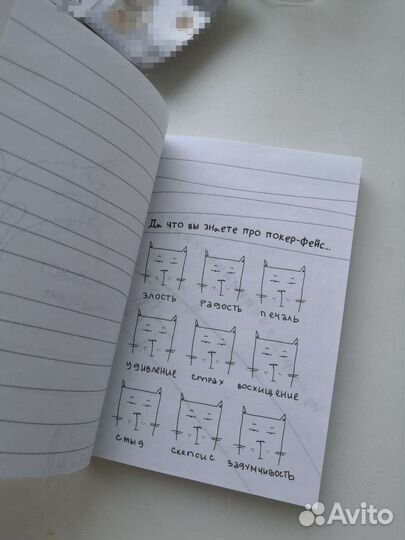 Да что вы знаете про покер-фейс...
злость радость печаль
удивление страх восхищение
стыд скепсис задумчивость
Avito